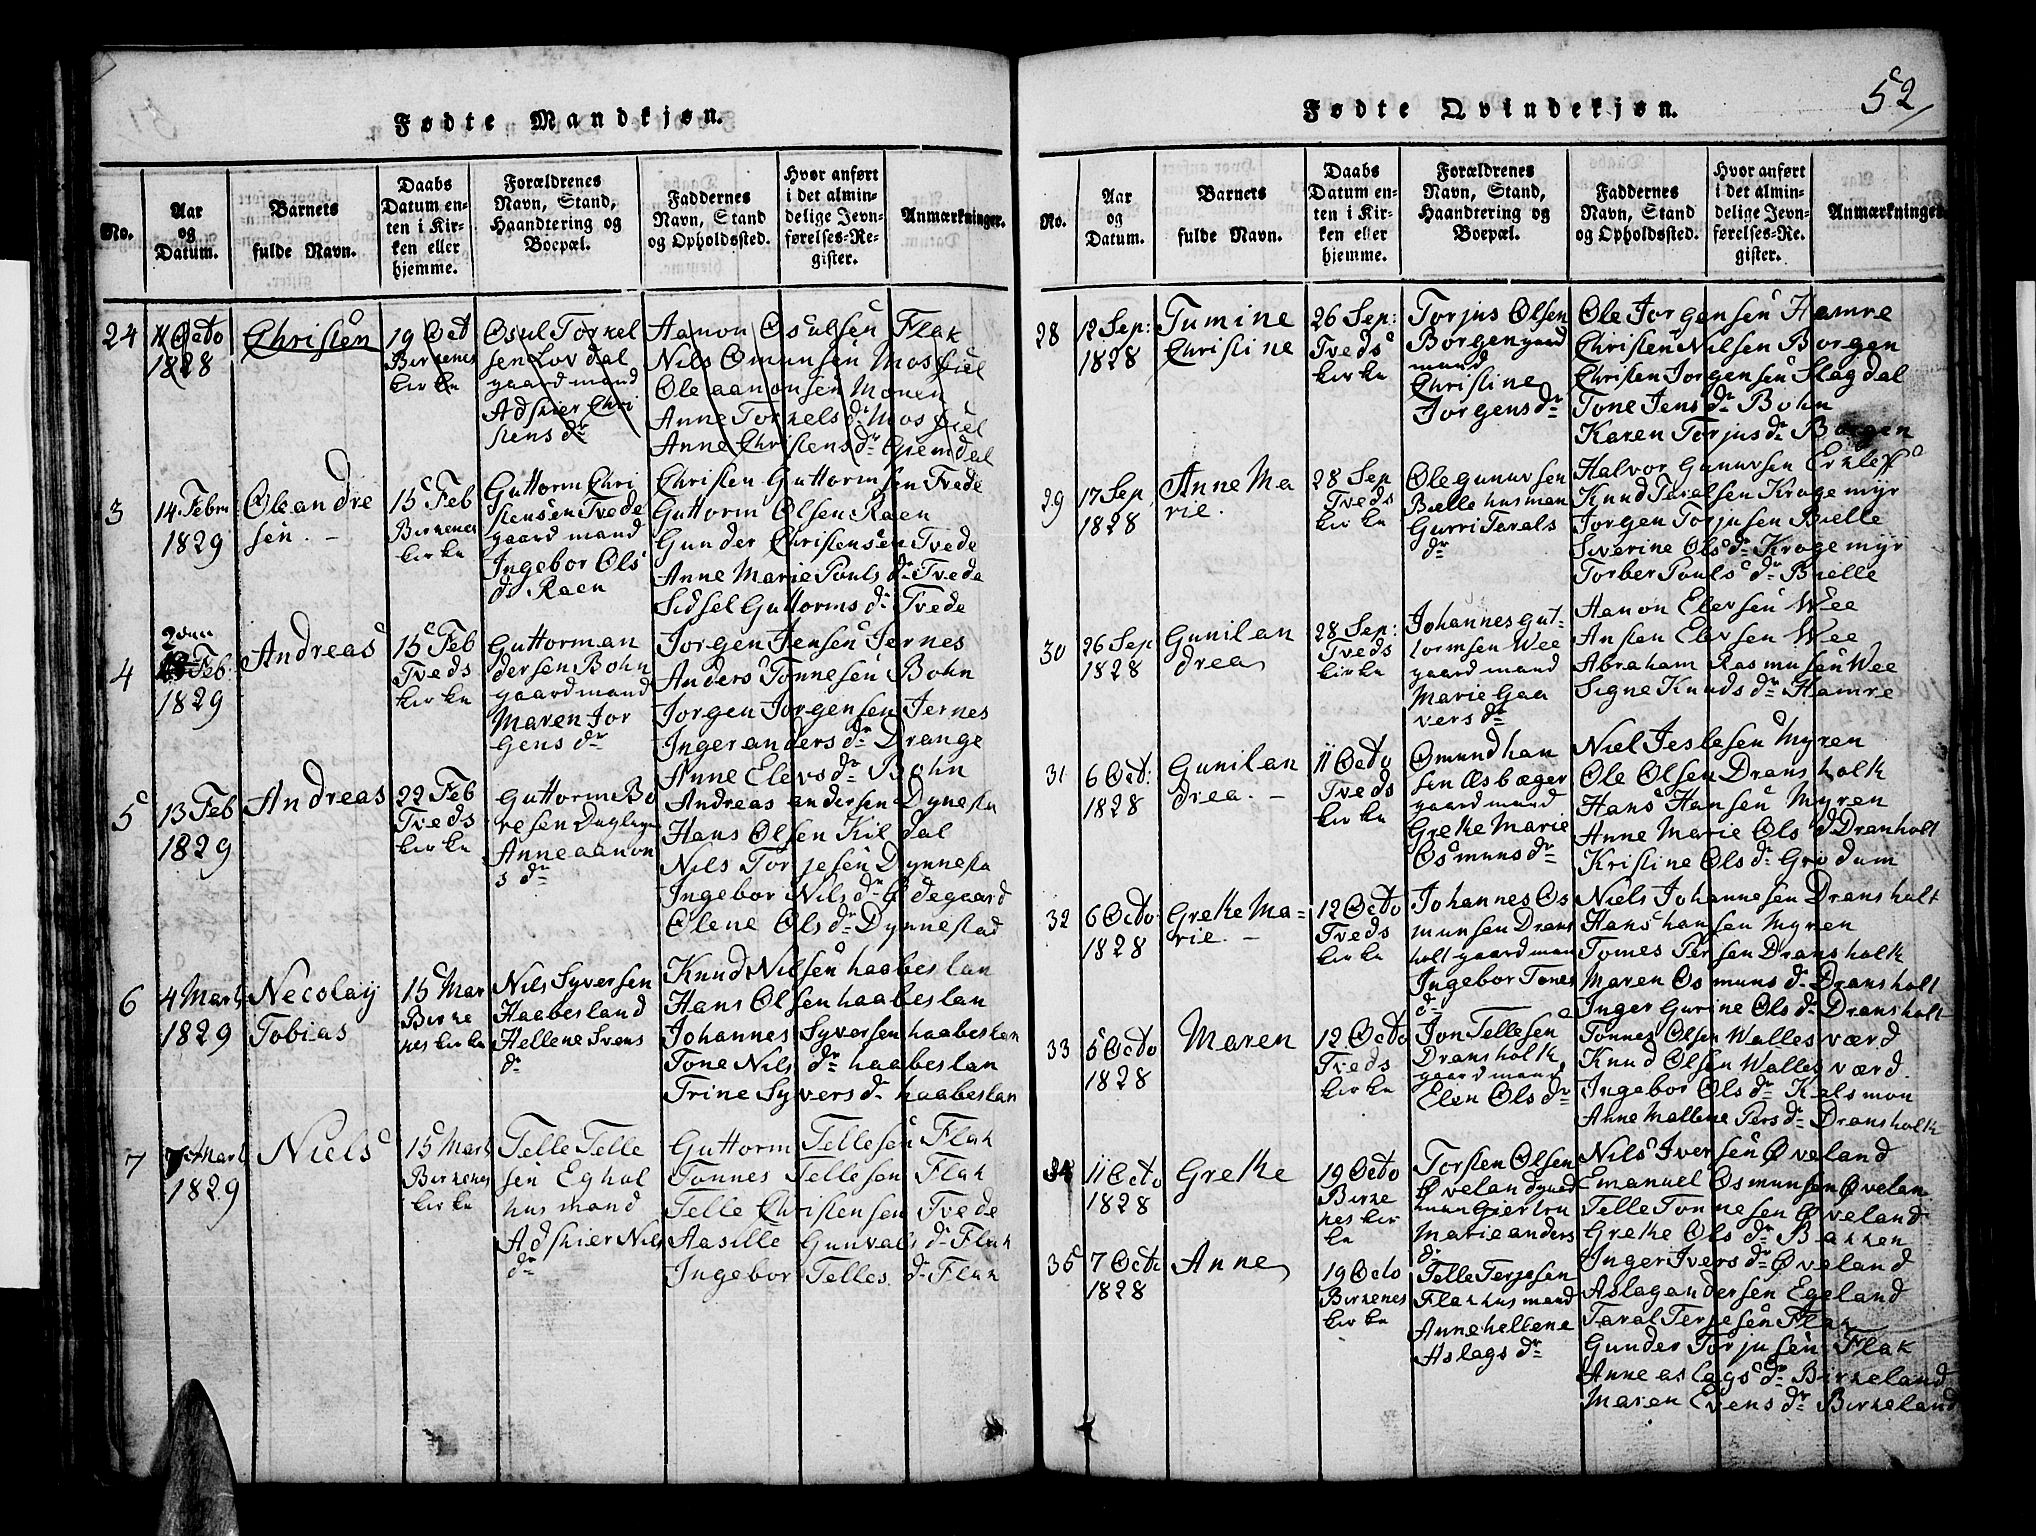 52
Fødte Mandkjøn.
No.
Aar
og
Datum.
Barnets
fulde Navn.
Daabs
Datum en-
ten i Kir-
ken eller
hjemme.
Forældrenes
Navn, Stand,
Haandtering og
Boepæl.
Faddernes
Navn, Stand
og Opholdssted.
Hvor anført
i det almin-
delige Jevn-
førelses-Re-
gister.
Anmærkninger.
24
11 Octo
1828
Christen
19 Oct
Birkenes
kirke
Osul Torkel
sen Lovdal
gaardmand
Adskier Chri
stens dr
Aanon Osulsen Flak
Nils Omunsen Mosfiel
Ole aanonsen Monen
Anne Torkels dr Mosfiel
Anne Christens dr Giemdal
3
14 Febru
1829
Oleandre
sen. -
15 Feb
Birkenes
kirke
Guttorm Chri
stensen Tvede
gaardmand
Ingebor Ols
dr Raen
Christen Guttormsen Tvede
Guttorm Olsen Raen
Gunder Christensen Tvede
Anne Marie Pouls dr Tvede
Sidsel Guttorms dr Tvede
4
2den
Feb.
1829
Andreas
15 Feb
Tveds
kirke
Guttorman
dersen Bohn
gaardmand
Maren Jor
gens dr
Jorgen Jensen Jernes
Anders Tonnesen Bohn
Jorgen Jorgensen Jernes
Inger anders dr Drange
Anne Elevs dr Bohn
5
13 Feb
1829
Andreas
22 Feb
Tveds
kirke
Guttorm Bo
resen
Anne aanon
s dr
Andreas andersen Dynesta
Hans Olsen Kildal
Nils Torjesen Dynnesta
Ingebor Nils dr Ødegaard
Olene Ols dr Dynnestad
6
4 Marti
1829
Necolay
Tobias
15 Mar
Birke
nes kirke
Nils Syversen
Haabesland
Hellene Svens
dr
Knud Nilsen haabeslan
Hans Olsen haabeslan
Johannes Syversen haabeslan
Tone Nils dr haabeslan
Trine Syvers dr haabeslan
7
7 Mart
1829
Niels
15 Mart
Birkenes
kirke
Telle Telle
sen Eghol
husmand
Adskier Nils
dr
Guttorm Tellesen Flak
Tonnes Tellesen Flak
Telle Christensen Tvede
Aasille Gunvals dr Flak
Ingebor Telles dr Flak
Fødte Qvindekjøn.
No.
Aar
og
Datum.
Barnets
fulde Navn.
Daabs
Datum en-
ten i Kir-
ken eller
hjemme.
Forældrenes
Navn, Stand,
Haandtering og
Boepæl.
Faddernes
Navn, Stand
og Opholdssted.
Hvor anført
i det almin-
delige Jevn-
førelses-Re-
gister.
Anmærkninger
28
12 Sep:
1828
Tumine
Christine
26 Sep:
Tveds
kirke
Torjus Olsen
Borgen gaard
mand
Christine
Jorgens dr
Ole Jorgensen Hamre
Christen Nilsen Borgen
Christen Jorgensen Slagdal
Tone Jens dr Bohn
Karen Torjus dr Borgen
29
17 Sep
1828
Anne Ma
rie.
28 Sep
Tveds
kirke
Ole gunuvsen
Bielle husman
Gurri Tarals
dr
Halvor Gunuvsen
Knud Taralsen Kragemyr
Jorgen Torjusen Bielle
Siverine Ols dr Kragemyr
Torber Pouls dr Bielle
30
26 Sep
1828
Gunilan
drea
28 Sep:
Tveds
kirke
Johannes Gut-
tormsen Wee
gaardmand
Marie Gaa
vers dr
Aanon Elevsen Wee
Ansten Elevsen Wee
Abraham Rasmusen Wee
Signe Knuds dr Hamre
31
6 Oct:
1828
Gunilan
drea. -
11 Octo
Tveds
kirke
Omund han
sen Æsbæger
gaardmand
Grethe Marie
Osmuns dr
Niel Jeslesen Myren
Ole Olsen Dransholt
Hans Hansen Myren
Anne Marie Ols dr Dranholt
Kristine Ols dr Grødum
32
6 Octo
1828
Grethe Ma-
rie. -
12 Octo
Tveds
kirke
Johannes Os
munsen Drans
holt gaardman
Ingebor Tones
dr
Niels Johannesen Dransholt
Hans hansen Myren
Tomes Persen Dransholt
Maren Osmuns dr Dransholt
Inger Gurine Ols dr Dransholt
33
5 Octo
1828
Maren
12. Octo
Tveds
kirke
Jon Tellesen
Dransholt
gaardmand
Elen Ols dr
Tonnes Olsen Wallesværd
Knud Olsen Wallesværd.
Ingebor Ols dr Kalsmon
Anne Mallene Pers dr Dransholt
34
11 Octo
1828
Grethe
19 Octo
Birke
nes kir
ke
Torsten Olsen
Øveland gaard
man Giertru
Marie anders
dr
Nils Iversen Øveland
Emanuel Osmunsen Øvelan
Telle Tonnesen Øveland
Grethe Ols dr Bakken
Inger Ivers dr Øveland
35
7 Octo
1828
Anne
19 Octo
Birkenes
kirke
Telle Terjesen
Flak husmand
Anne hellene
Aslags dr
Aslag andersen Egeland
Taral Terjesen Flak
Gunder Torjusen Flak
Anne aslags dr Birkeland
Maren Evens dr Birkeland